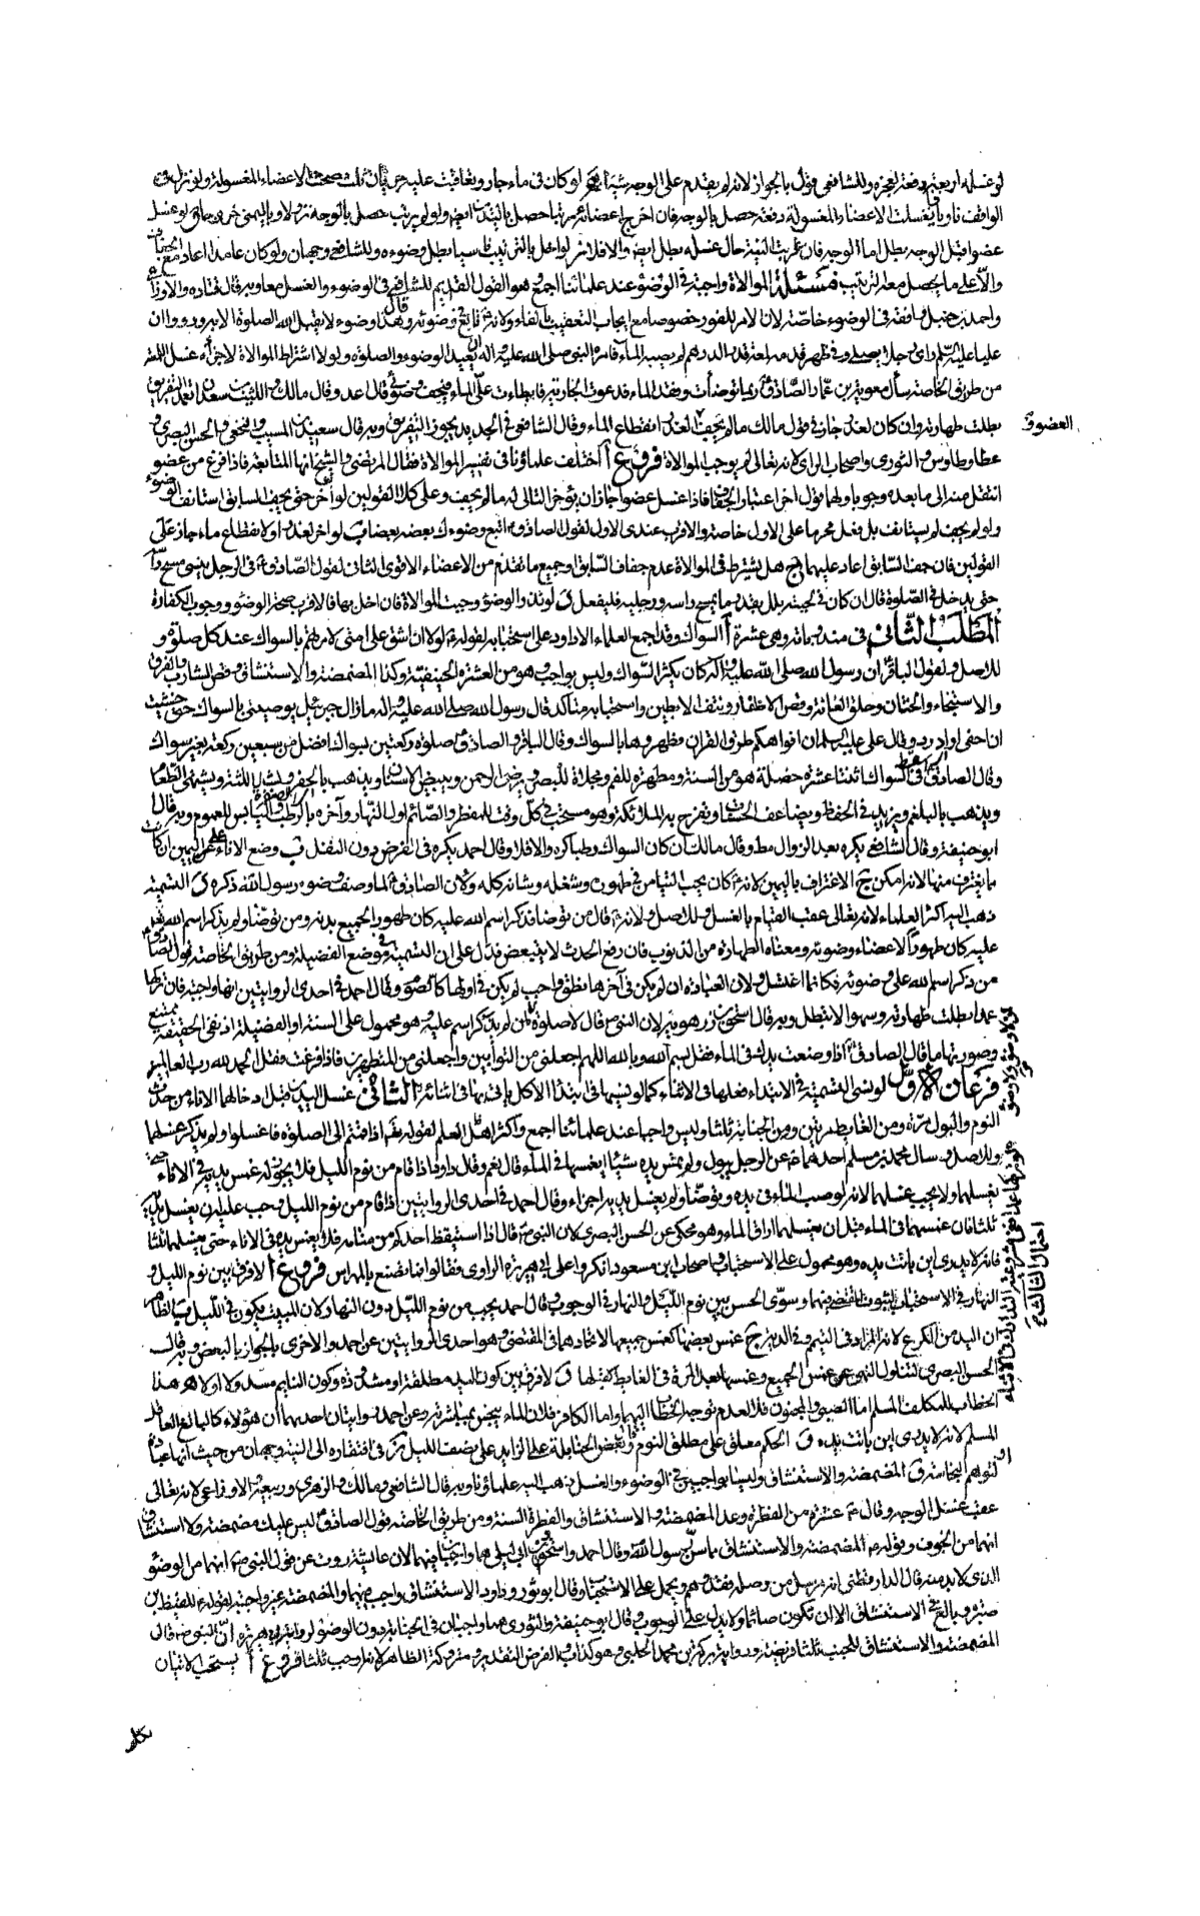 لو غسله اربعة دفعة لم يجزه وللشافعي قول بالجواز لانه لم يقدم على الوجه شيئا ج لو كان في ماء جار وتعاقبت عليه جريات ثلث صحت الاعضاء المغسولة ولو نزل في
الواقف ناويا فغسلت الاعضاء المغسولة دفعة حصل بالوجه فان اخرج اعضائه مرتبا حصل باليدين ايضا ولو لم يرتب حصل بالوجه نزولا وباليمنى خروجا د لو غسل
عضوا قبل الوجه بطل اما الوجه فان عزبت النية حال غسله بطل ايضا والا فلا لو اخل بالترتيب ناسيا بطل وضوءه وللشافعي وجهان ولو كان عامدا اعاد مع الجفاف
والا على ما يحصل معه الترتيب مسئلة الموالاة واجبة في الوضوء عند علمائنا اجمع وهو القول القديم للشافعي في الوضوء والغسل معا وبه قال قتادة والاوزاعي
واحمد بن حنبل وافقه في الوضوء خاصة لان الامر للفور خصوصا مع ايجاب التعقيب بالفاء ولانه ع تابع في وضوئه وقال هذا وضوء لا يقبل الله الصلوة الا به ورووا ان
عليا عليه السلم راى رجلا يصلي وفي ظهر قدمه لمعة قدر الدرهم لم يصبه الماء فامره النبي صلى الله عليه واله ان يعيد الوضوء والصلوة ولولا اشتراط الموالاة لاجزأه غسل اللمعة
من طريق الخاصة سأل معوية بن عمار الصادق ع ربما توضأت ونفد الماء فدعوت الجارية فابطات علي بالماء فيجف وضوئي قال اعد وقال مالك والليث بن سعد ان تعمد التفريق
بطلت طهارته وان كان لعذر جاز في قول مالك ما لم يجف العضو والعذر انقطاع الماء وقال الشافعي في الجديد يجوز التفريق وبه قال سعيد بن المسيب والنخعي والحسن البصري و
عطا وطاوس والثوري واصحاب الراي لانه تعالى لم يوجب الموالاة فروع ا اختلف علماؤنا في تفسير الموالاة فقال المرتضى والشيخ انها المتابعة فاذا فرغ من عضو
انتقل منه الى ما بعده وجوبا ولهما قول اخر اعتبار الجفاف فاذا غسل عضوا جاز ان يؤخر التالي له ما لم يجف وعلى كلا القولين لو اخر حتى يجف السابق استانف الوضوء
ولو لم يجف لم يستانف بل فعل محرما على الاول خاصة والاقرب عندي الاول لقول الصادق ع اتبع وضوءك بعضه بعضا ب لو اخر لعذر او لانقطاع ماء جاز على
القولين فان جف السابق اعاد عليهما ج هل يشترط في الموالاة عدم جفاف السابق او جميع ما تقدم من الاعضاء الاقوى الثاني لقول الصادق ع في الرجل ينسى مسح راسه
حتى يدخل في الصلوة قال ان كان في لحيته بلل بقدر ما يمسح راسه ورجليه فليفعل د لو نذر الوضوء وجبت الموالاة فان اخل بها فالاقرب صحة الوضوء ووجوب الكفارة
المطلب الثاني في مندوباته وهي عشرة ا السواك وقد اجمع العلماء الا داود على استحبابه لقوله ع لولا ان اشق على امتي لامرتهم بالسواك عند كل صلوة و
للاصل ولقول الباقر ع ان رسول الله صلى الله عليه واله كان يكثر السواك وليس بواجب وهو من العشرة الحنيفية وكذا المضمضة والاستنشاق وقص الشارب والفرق
والاستنجاء والختان وحلق العانة وقص الاظفار ونتف الابطين واستحبابه متاكد قال رسول الله صلى الله عليه واله ما زال جبرئيل يوصيني بالسواك حتى خشيت
ان احفي او ادرد وقال علي عليه السلم ان افواهكم طرق القران فطهروها بالسواك وقال الباقر والصادق ع صلوة ركعتين بسواك افضل من سبعين ركعة بغير سواك
وقال الصادق ع في السواك اثنتا عشرة خصلة هو من السنة ومطهرة للفم ومجلاة للبصر ويرضي الرحمن ويبيض الاسنان ويذهب بالحفر ويشد اللثة ويشهي الطعام
ويذهب بالبلغم ويزيد في الحفظ ويضاعف الحسنات وتفرح به الملائكة وهو مستحب في كل وقت للمفطر والصائم اول النهار وآخره بالرطب واليابس للعموم وبه قال
ابو حنيفة وقال الشافعي يكره بعد الزوال مطلقا وقال مالك ان كان السواك رطبا كره والا فلا وقال احمد يكره في الفرض دون النفل ب وضع الاناء على اليمين ان كان
ما يغترف منها لانه امكن ج الاغتراف باليمين لانه ع كان يحب التيامن في طهوره وشغله وشانه كله ولان الصادق ع لما وصف وضوء رسول الله ص ذكره د التسمية
ذهب اليه اكثر العلماء لانه تعالى عقب القيام بالغسل وللاصل ولانه ع قال من توضا فذكر اسم الله عليه كان طهورا لجميع بدنه ومن توضا ولم يذكر اسم الله
عليه كان طهورا لاعضاء وضوئه ومعناه الطهارة من الذنوب فان رفع الحدث لا يتبعض فدل على ان التسمية في موضع الفضيلة ومن طريق الخاصة قول الصادق ع
من ذكر اسم الله على وضوئه فكانما اغتسل ولان العبادة ان لم يكن في آخرها نطق واجب لم يكن في اولها كالصوم وقال احمد في احدى الروايتين انها واجبة فان تركها
عمدا بطلت طهارته وسهوا لا تبطل وبه قال اسحق بن راهويه لان النبي ص قال لا صلوة لمن لم يذكر اسم الله عليه وهو محمول على السنة او الفضيلة اذ نفي الحقيقة ممتنع
وصورتها ما قال الصادق ع اذا وضعت يدك في الماء فقل بسم الله وبالله اللهم اجعلني من التوابين واجعلني من المتطهرين فاذا فرغت فقل الحمد لله رب العالمين
فرعان الاول لو نسي التسمية في الابتداء فعلها في الاثناء كما لو نسيها في ابتداء الاكل ياتي بها في اثنائه الثاني غسل اليدين قبل ادخالهما الاناء من حدث
النوم والبول مرة ومن الغائط مرتين ومن الجنابة ثلثا وليس واجبا عند علمائنا اجمع واكثر اهل العلم لقوله تعالى اذا قمتم الى الصلوة فاغسلوا ولم يذكر غسلهما
وللاصل وسال محمد بن مسلم احدهما ع عن الرجل يبول ولم يمس يده شيئا ايغمسها في الماء قال نعم وقال داود اذا قام من نوم الليل فلا يجوز له غمس يديه في الاناء حتى
يغسلهما ولا يجب غسلهما لانه لو صب الماء في يده وتوضأ ولم يغسل يديه اجزاه وقال احمد في احدى الروايتين اذا قام من نوم الليل وجب عليه ان يغسل يديه
ثلثا فان غمسهما في الماء قبل ان يغسلهما اراق الماء وهو محكي عن الحسن البصري لان النبي ص قال اذا استيقظ احدكم من منامه فلا يغمس يده في الاناء حتى يغسلها ثلثا
فانه لا يدري اين باتت يده وهو محمول على الاستحباب واصحاب ابن مسعود انكروا على ابي هريرة الراوي فقالوا ما نصنع بالمهراس فروع ا لا فرق بين نوم الليل و
النهار في الاستحباب لثبوت المقتضي فيهما وسوى الحسن بين نوم الليل والنهار في الوجوب وقال احمد يجب من نوم الليل دون النهار لان المبيت يكون في الليل ب الظاهر
ان اليد من الكرع لانه المراد في التيمم والدية ج غمس بعضها كغمس جميعها لاتحادهما في المقتضي وهو احدى الروايتين عن احمد والاخرى بالجواز بالبعض وبه قال
الحسن البصري لتناول النهي عن غمس الجميع وغمسها بعد المرة في الغائط كقبلها د لا فرق بين كون اليد مطلقة او مشدودة وكون النايم مسدولا او لا هو هذا
الخطاب للمكلف المسلم اما الصبي والمجنون فلا لعدم توجه الخطاب اليهما واما الكافر فلان الماء ينجس بمباشرته وعن احمد روايتان احديهما ان هؤلاء كالبالغ العاقل
المسلم لانه لا يدري اين باتت يده و الحكم معلق على مطلق النوم وبعض الحنابلة على الزايد على نصف الليل ز في افتقاره الى النية وجهان من حيث انها عبادة او
لتوهم النجاسة و المضمضة والاستنشاق وليسا بواجبين في الوضوء والغسل ذهب اليه علماؤنا وبه قال الشافعي ومالك والزهري وربيعة والاوزاعي لانه تعالى
عقب بغسل الوجه وقال ع عشرة من الفطرة وعد المضمضة والاستنشاق والفطرة السنة ومن طريق الخاصة قول الصادق ع ليس عليك مضمضة ولا استنشاق
انهما من الجوف وقوله ع المضمضة والاستنشاق مما سن رسول الله ص وقال احمد واسحق وابن ابي ليلى هما واجبان فيهما لان عايشة روت عن قول النبي ص انهما من الوضوء
الذي لا بد منه قال الدارقطني انه مرسل من وصله فقد وهم ويحمل على الاستحباب وقال ابو ثور وداود الاستنشاق واجب فيهما والمضمضة غير واجبة لقوله ع للقيط بن
صبرة وبالغ في الاستنشاق الا ان تكون صائما ولا يدل على الوجوب وقال ابو حنيفة والثوري هما واجبان في الجنابة دون الوضوء لرواية ابي هريرة ان النبي ص قال
المضمضة والاستنشاق للجنب ثلثا فريضة ورواية بركة بن محمد الحلبي وهو كذاب والفرض التقدير ومتروكة الظاهر لانه اوجب ثلثا فروع ا يستحب الاتيان